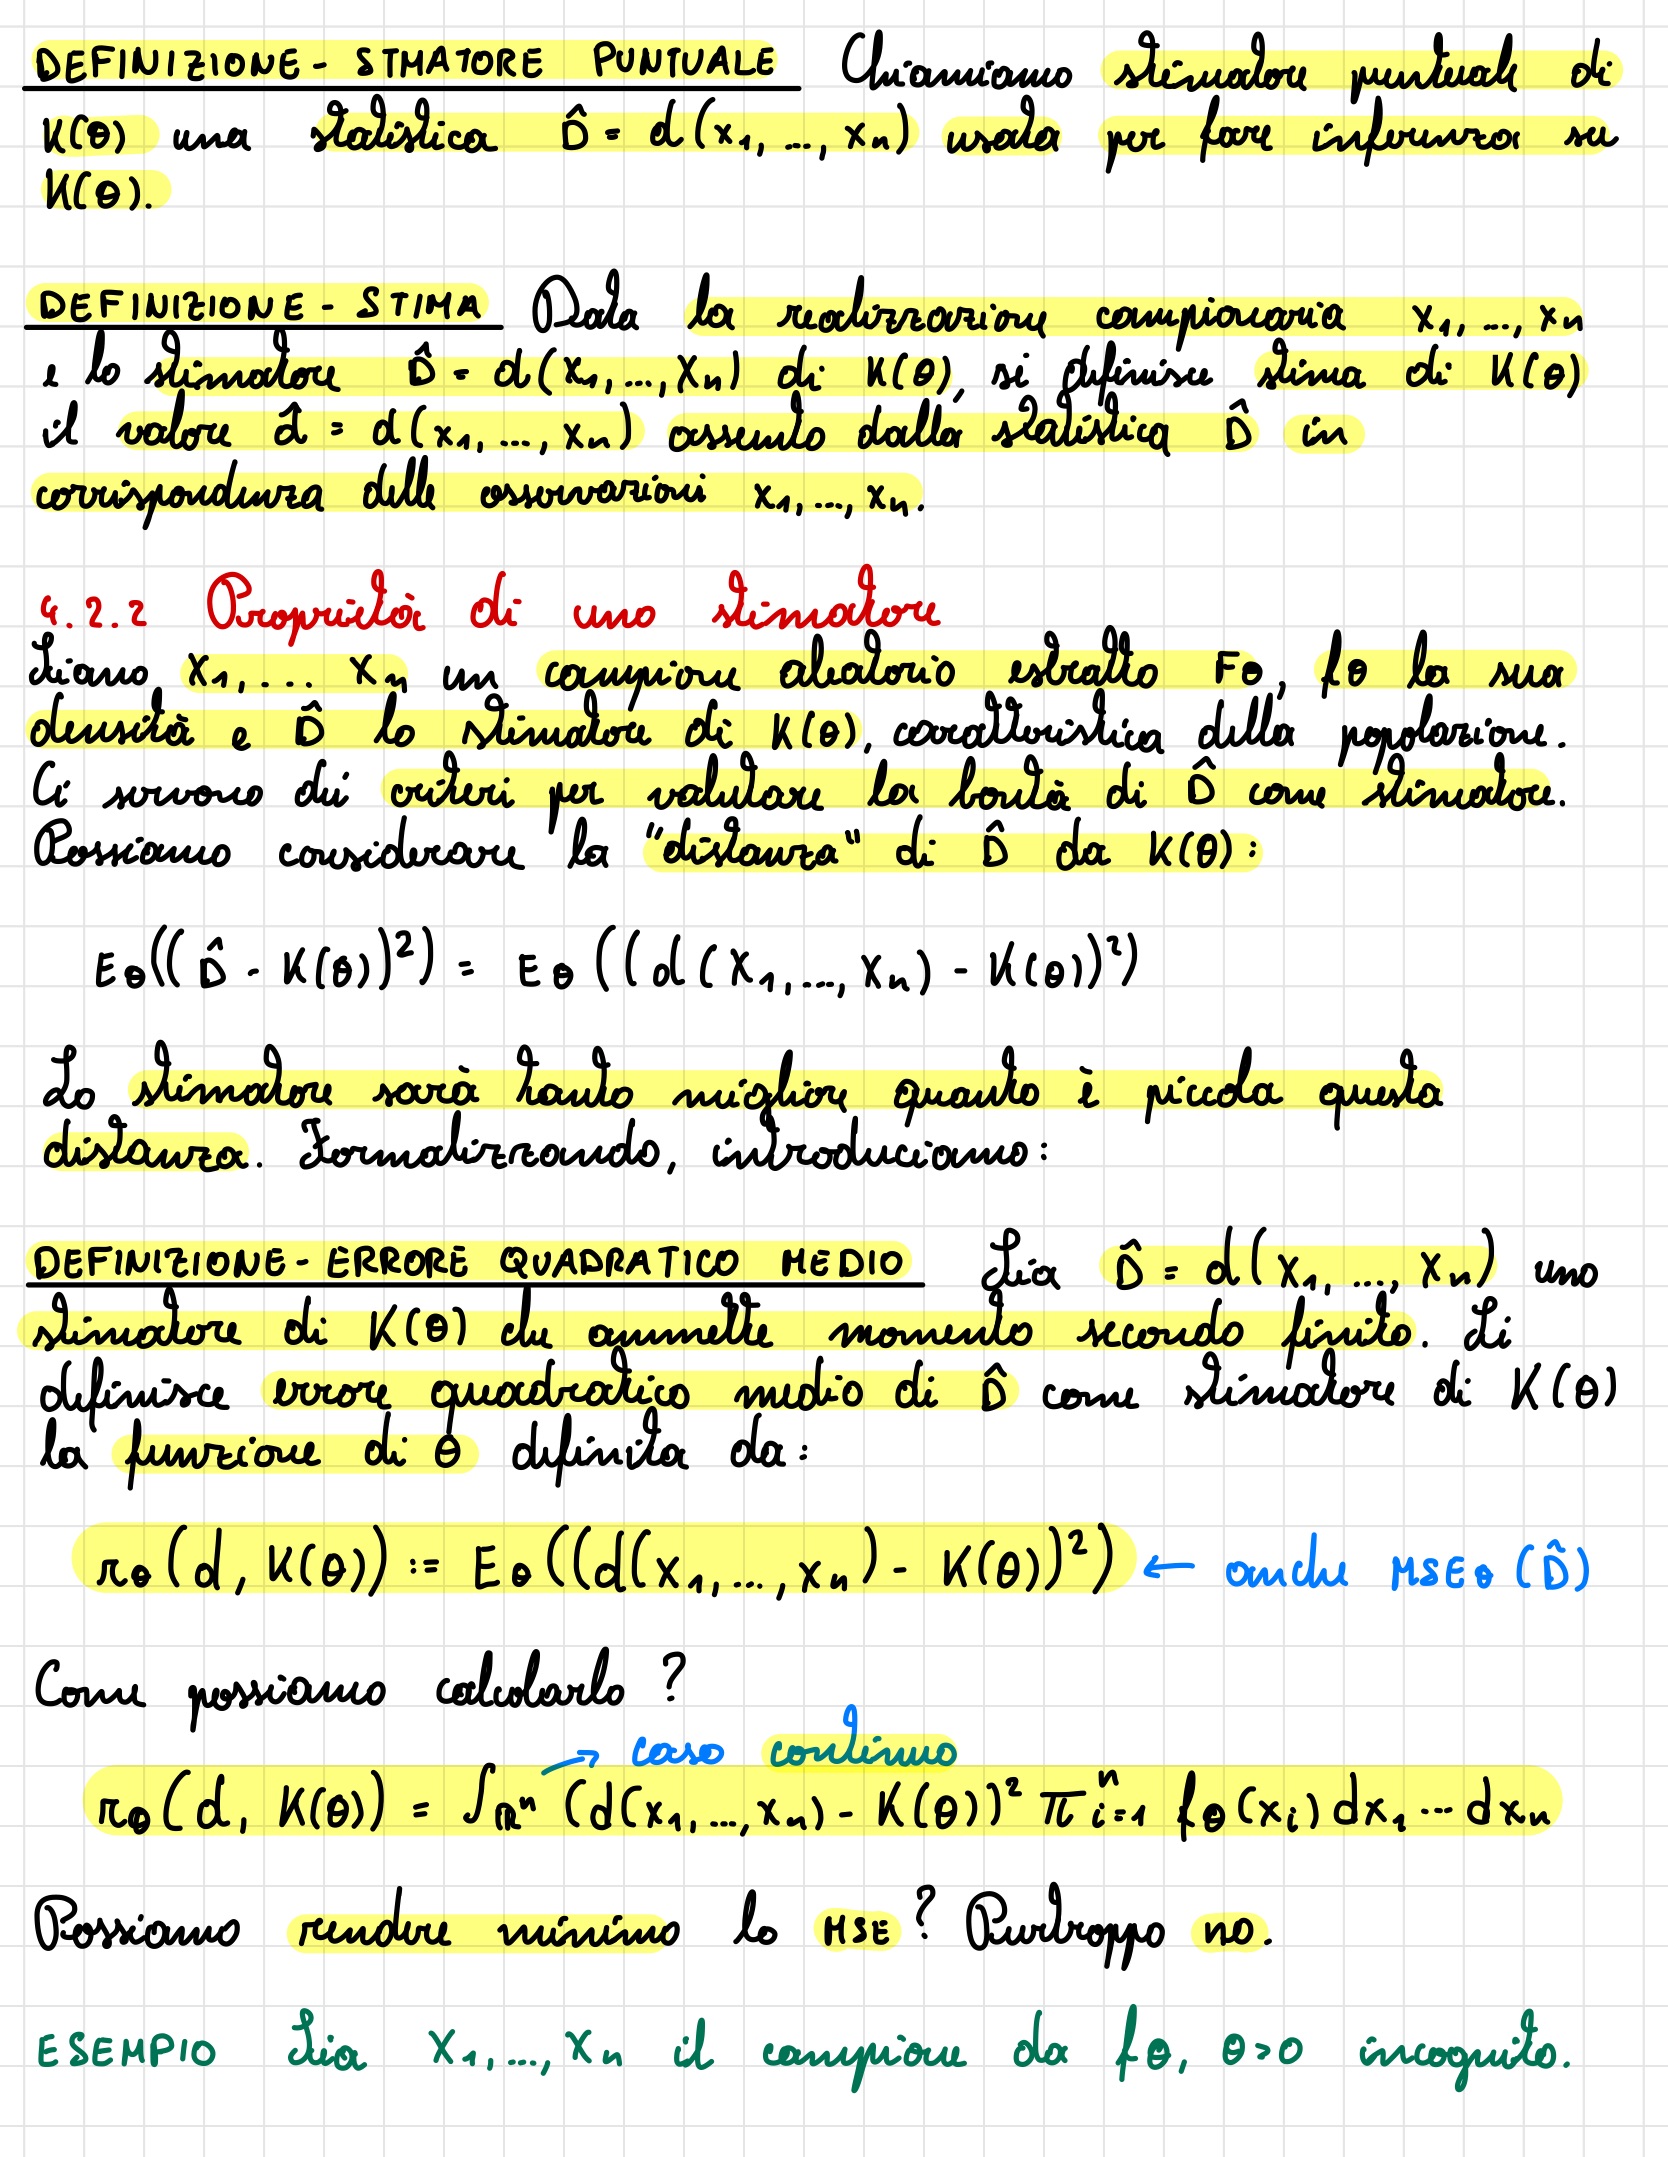 DEFINIZIONE - STMATORE PUNTUALE Chiamiamo stimatore puntuale di
K(θ) una statistica D̂ = d(x₁, ..., xₙ) usata per fare inferenza su
K(θ).
DEFINIZIONE - STIMA Data la realizzazione campionaria x₁, ..., xₙ
e lo stimatore D̂ = d(X₁, ..., Xₙ) di K(θ), si definisce stima di K(θ)
il valore d̂ = d(x₁, ..., xₙ) assunto dalla statistica D̂ in
corrispondenza delle osservazioni x₁, ..., xₙ.
4.2.2 Proprietà di uno stimatore
Siano X₁, ... Xₙ un campione aleatorio estratto Fθ, fθ la sua
densità e D̂ lo stimatore di K(θ), caratteristica della popolazione.
Ci servono dei criteri per valutare la bontà di D̂ come stimatore.
Possiamo considerare la "distanza" di D̂ da K(θ):
Eθ((D̂ - K(θ))²) = Eθ((d(X₁, ..., Xₙ) - K(θ))²)
Lo stimatore sarà tanto migliore quanto è piccola questa
distanza. Formalizzando, introduciamo:
DEFINIZIONE - ERRORE QUADRATICO MEDIO Sia D̂ = d(X₁, ..., Xₙ) uno
stimatore di K(θ) che ammette momento secondo finito. Si
definisce errore quadratico medio di D̂ come stimatore di K(θ)
la funzione di θ definita da:
rθ(d, K(θ)) := Eθ((d(x₁, ..., xₙ) - K(θ))²) ← anche MSEθ(D̂)
Come possiamo calcolarlo?
→ caso continuo
rθ(d, K(θ)) = ∫ℝⁿ (d(x₁, ..., xₙ) - K(θ))² π ⁿi=1 fθ(xᵢ) dx₁ ... dxₙ
Possiamo rendere minimo lo MSE? Purtroppo no.
ESEMPIO Sia X₁, ..., Xₙ il campione da fθ, θ>0 incognito.